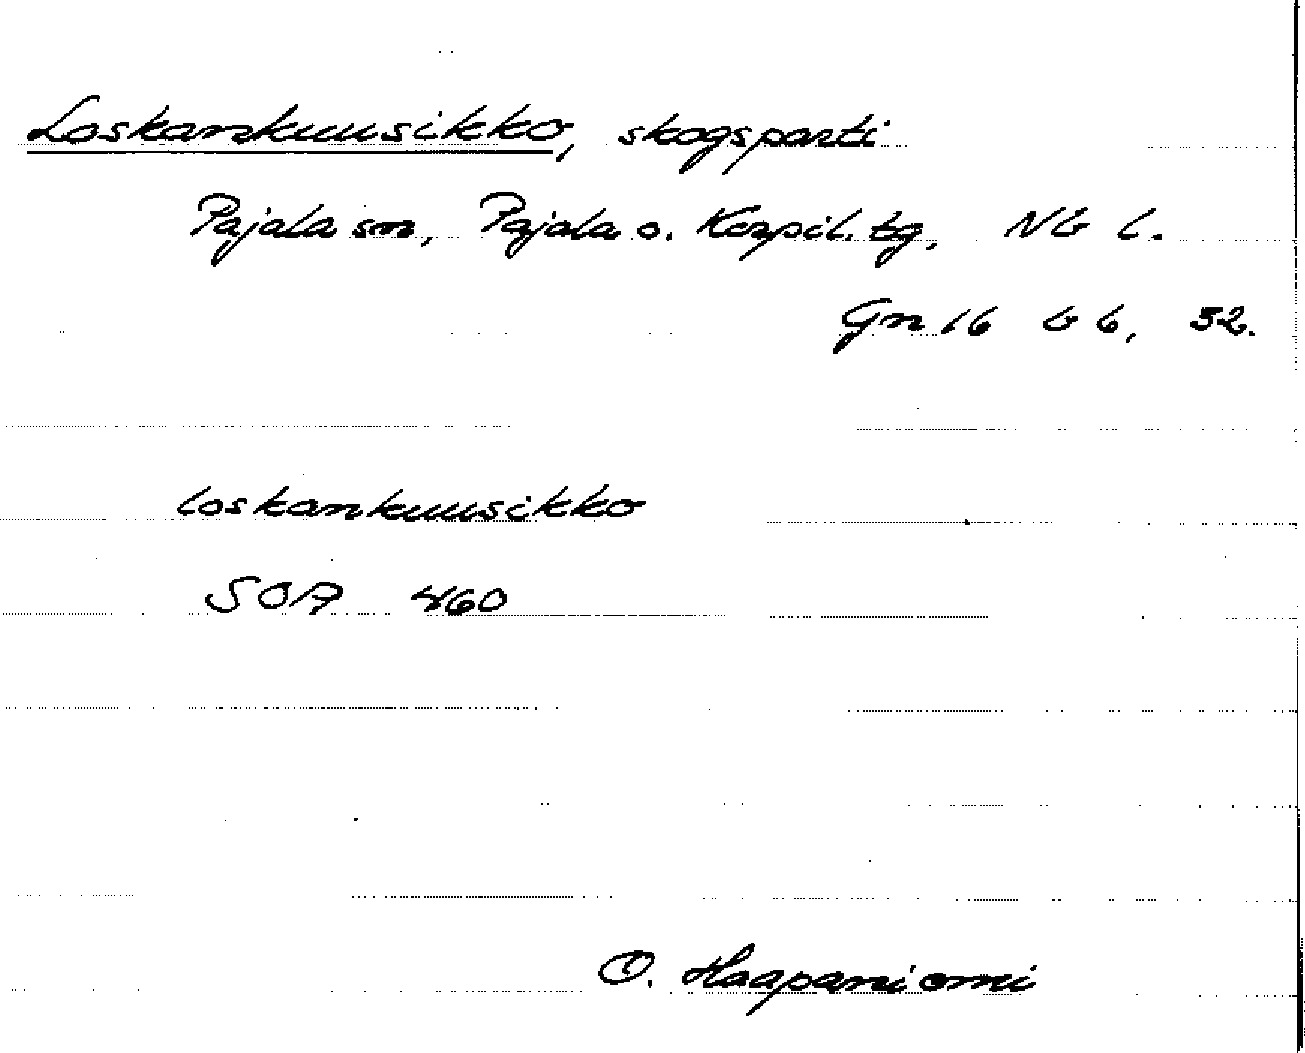 Loskankuusikko, skogsparti
Pajala sn, Pajala o. Korpil. tg, Nb l.
Gn 16 b 6, 32.
loskankuusikko
SOA 460
O. Haapaniemi